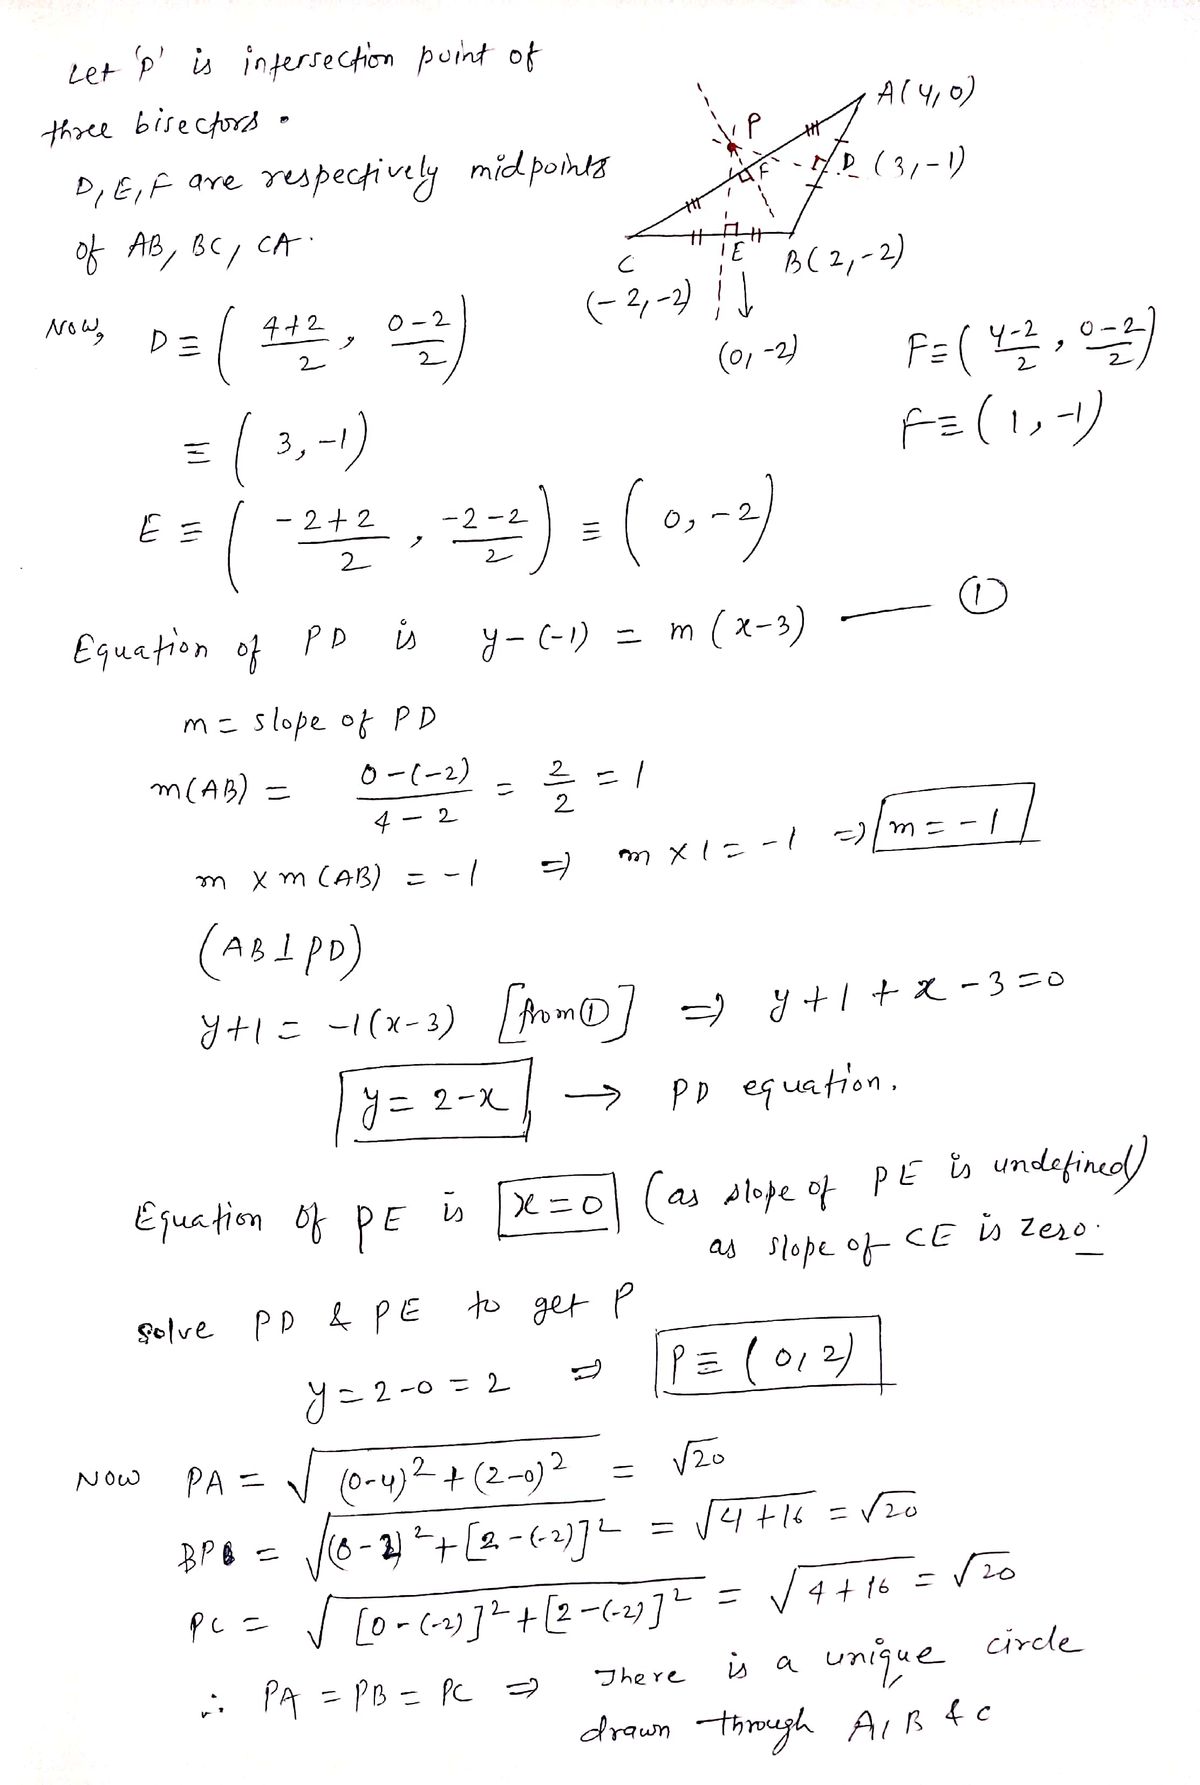 Let 'P' is intersection point of
three bisectors.
D, E, F are respectively midpoints
of AB, BC, CA.
A(4,0)
P
F
D (3,-1)
C
E
B(2,-2)
(-2,-2)
(0,-2)
Now, D ≡ ( 4+2/2 , 0-2/2 )
F ≡ ( 4-2/2 , 0-2/2 )
≡ ( 3, -1)
F ≡ ( 1, -1)
E ≡ ( -2+2/2 , -2-2/2 ) ≡ ( 0, -2)
Equation of PD is y-(-1) = m (x-3) —— ①
m = slope of PD
m(AB) = 0-(-2)/4-2 = 2/2 = 1
m x m(AB) = -1 ⇒ m x 1 = -1 ⇒ m = -1
(AB ⊥ PD)
y+1 = -1(x-3) [from ①] ⇒ y+1+x-3=0
y = 2-x → PD equation.
Equation of PE is x=0 (as slope of PE is undefined)
as slope of CE is zero.
solve PD & PE to get P
y = 2-0 = 2 ⇒ P ≡ (0,2)
Now PA = √(0-4)²+(2-0)² = √20
BP = √(0-2)²+[2-(-2)]² = √4+16 = √20
PC = √[0-(-2)]²+[2-(-2)]² = √4+16 = √20
∴ PA = PB = PC ⇒ There is a unique circle
drawn through A, B & C